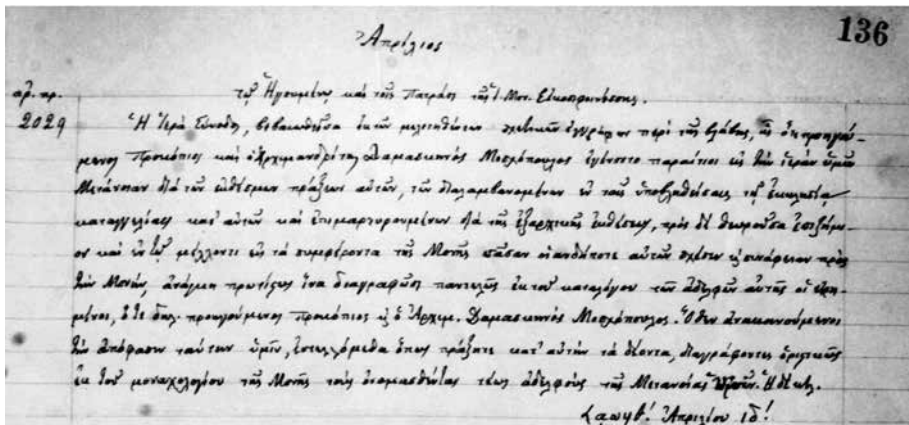 136
Ἀπρίλιος
ἀρ. πρ.
τῷ Ἡγουμένῳ καὶ τοῖς Πατράσι τῆς Ἱ. Μον. Εἰκοσιφοινίσσης.
2029 Ἡ Ἱερὰ Σύνοδος, βεβαιωθεῖσα ἐκ τῶν μελετηθέντων σχετικῶν ἐγγράφων περὶ τῆς βλάβης, ἧς ὁ προηγού-
μενος Προκόπιος καὶ ὁ Ἀρχιμανδρίτης Δαμασκηνὸς Μοσχόπουλος ἐγένοντο παραίτιοι εἰς τὴν ἱερὰν ὑμῶν
Μετάνοιαν διὰ τῶν ἐκθέσμων πράξεων αὐτῶν, τῶν διαλαμβανομένων ἐν ταῖς ὑποβληθείσαις τῇ ἐκκλησίᾳ
καταγγελίαις κατ' αὐτῶν καὶ ἐπιμαρτυρουμένων διὰ τῆς ἐξαρχικῆς ἐκθέσεως, πρὸς δὲ θεωροῦσα ἐπιζήμι-
ον καὶ ἐν τῷ μέλλοντι εἰς τὰ συμφέροντα τῆς Μονῆς πᾶσαν οἱανδήποτε αὐτῶν σχέσιν ἢ συνάφειαν πρὸς
τὴν Μονήν, ἵνα διαγραφῶσι παντελῶς ἐκ τοῦ καταλόγου τῶν ἀδελφῶν αὐτῆς οἱ εἰρη-
μένοι, ὅ τε δηλ. προηγούμενος Προκόπιος κ ὁ Ἀρχιμ. Δαμασκηνὸς Μοσχόπουλος. Ὅθεν ἀνακοινούμενοι
τὴν ἀπόφασιν ταύτην ὑμῖν, ἐντελλόμεθα ὅπως πράξητε κατ' αὐτὴν τὰ δέοντα, διαγράφοντες ὁριστικῶς
ἐκ τοῦ μοναχολογίου τῆς Μονῆς τοὺς ὀνομασθέντας τέως ἀδελφοὺς τῆς Μετανοίας ὑμῶν. Ἡ δὲ κτλ.
Ἀπριλίου ιδ'